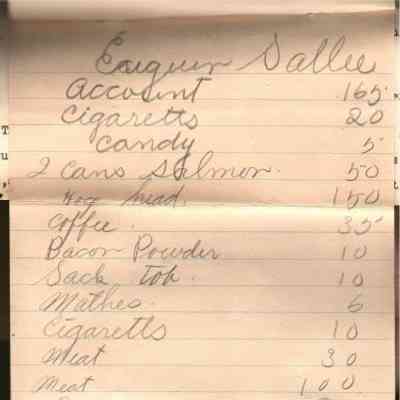 Sallee
account 165
Cigaretts 20
Candy 5
2 cans salmon. 50
Hog head. 150
Coffee. 35
Bacon Powder 10
Sack tob. 10
Mathes. 6
Cigaretts 10
Meat 30
Meat 100